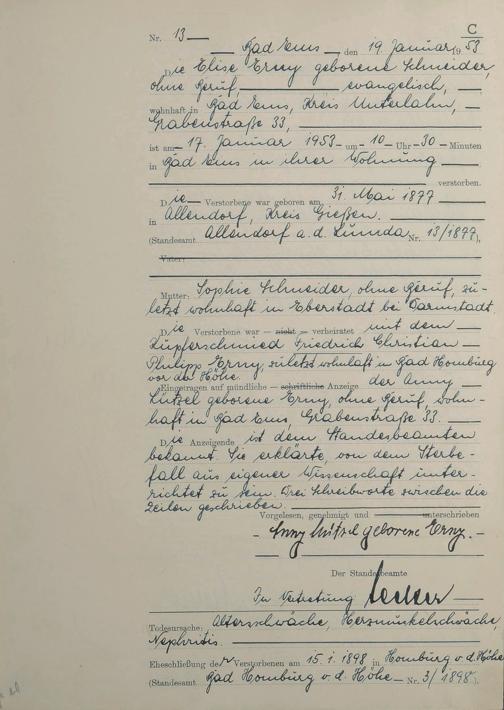 C
Nr. 13
Bad Ems, den 19. Januar 1953
Die Elise Erny geborene Schneider,
ohne Beruf, evangelisch,
wohnhaft in Bad Ems, Kreis Unterlahn,
Grabenstraße 33,
ist am 17. Januar 1953 um 10 Uhr 30 Minuten
in Bad Ems in ihrer Wohnung
verstorben.
Die Verstorbene war geboren am 31. Mai 1877
in Allendorf, Kreis Gießen.
(Standesamt Allendorf a. d. Lumda Nr. 13/1877),
Vater:
Mutter: Sophie Schneider, ohne Beruf, zu-
letzt wohnhaft in Eberstadt bei Darmstadt.
Die Verstorbene war — nicht — verheiratet mit dem
Kupferschmied Friedrich Christian
Philipp Erny, zuletzt wohnhaft in Bad Homburg
vor der Höhe.
Eingetragen auf mündliche — schriftliche Anzeige der Anny
Lützel geborene Erny, ohne Beruf, wohn-
haft in Bad Ems, Grabenstraße 33.
Die Anzeigende ist dem Standesbeamten
bekannt. Sie erklärte, von dem Sterbe-
fall aus eigener Wissenschaft unter-
richtet zu sein. Drei Schreibworte zwischen die
Zeilen geschrieben.
Vorgelesen, genehmigt und unterschrieben
Anny Lützel geborene Erny.
Der Standesbeamte
In Vertretung
Todesursache: Altersschwäche, Herzmuskelschwäche,
Nephritis.
Eheschließung der Verstorbenen am 15. 1. 1898 in Homburg v. d. Höhe
(Standesamt Bad Homburg v. d. Höhe Nr. 3/1898).